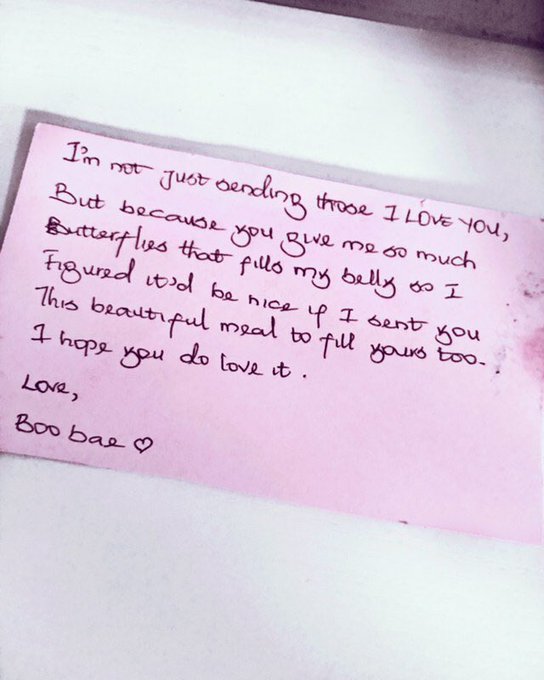 I'm not just sending those I LOVE YOU,
But because you give me so much
Butterflies that fills my belly so I
Figured it'd be nice if I sent you
This beautiful meal to fill yours too.
I hope you do love it.
Love,
Boo bae ♡